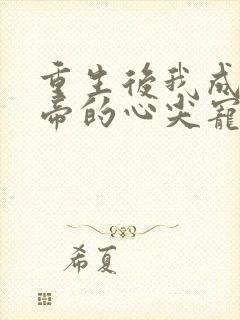 重生後我成
帝的心尖寵
希夏